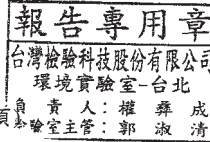 報告專用章
台灣檢驗科技股份有限公司
環境實驗室-台北
負責人：權彝成
驗室主管：郭淑清
頁